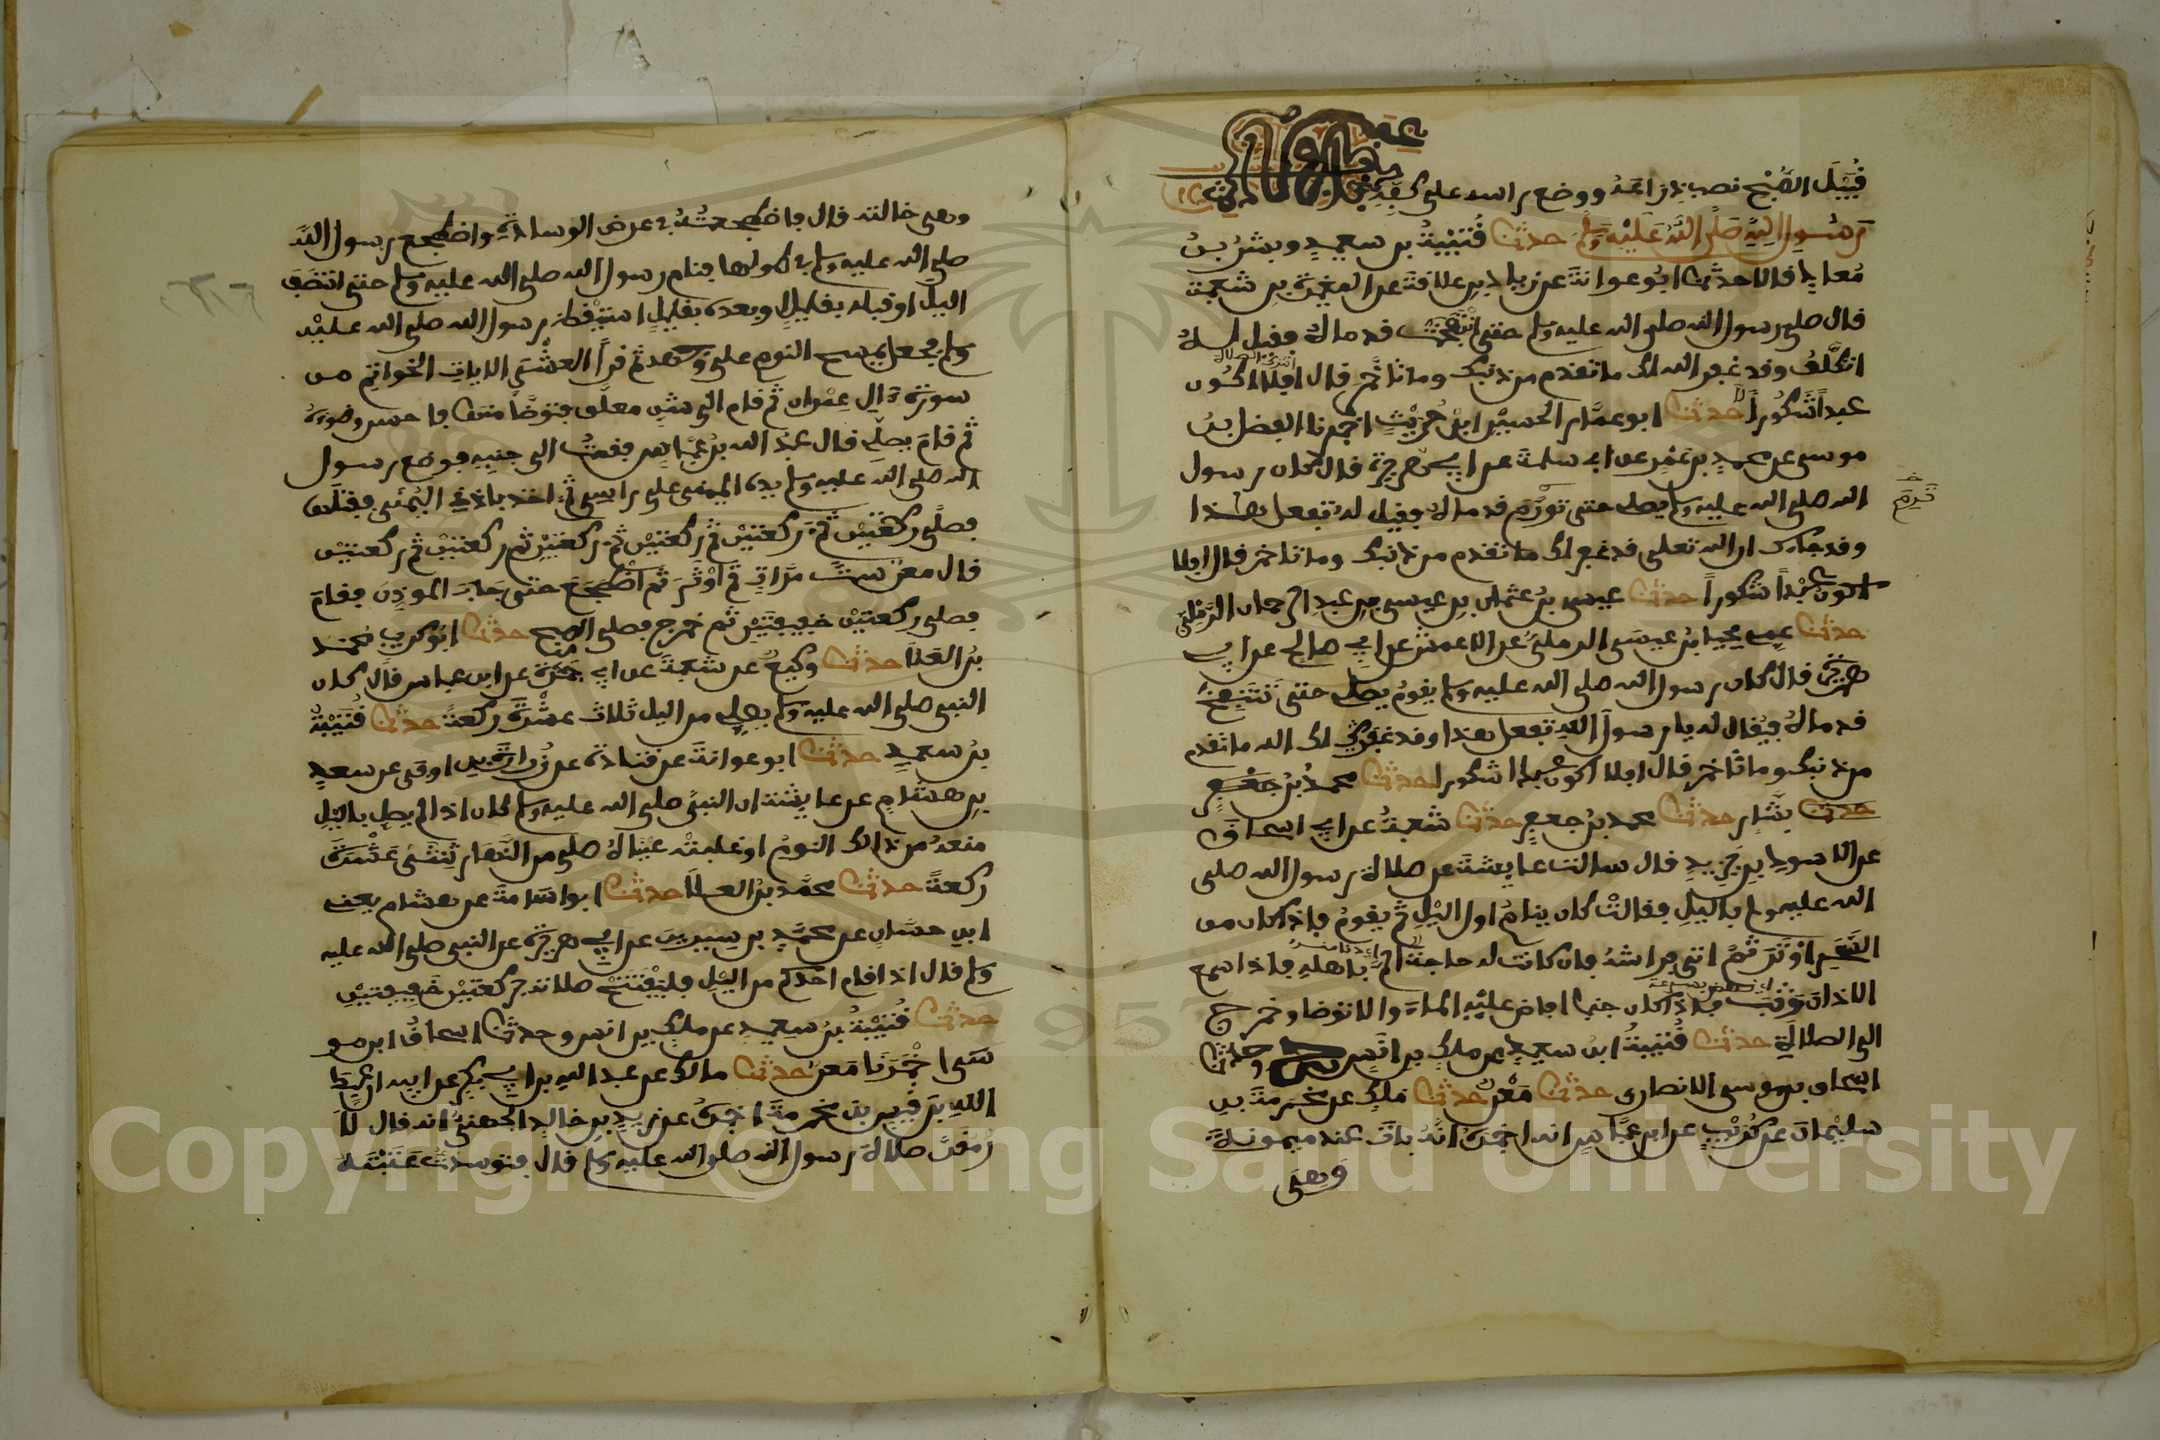 قُبَيْلَ الصُّبْحِ نصب ذراعه ووضع راسه على كفه
باب
عبادة
رسول الله صلى الله عليه وسلم حدثنا قتيبة بن سعيد وبشر بن
معاذ قالا حدثنا ابو عوانة عن زياد بن علاقة عن المغيرة بن شعبة
قال صلى رسول الله صلى الله عليه وسلم حتى انتفخت قدماه فقيل له
اتتكلف وقد غفر الله لك ما تقدم من ذنبك وما تاخر قال افلا اكون
عبدا شكورا حدثنا ابو عمار الحسين ابن حريث اخبرنا الفضل بن
موسى عن محمد بن عمر عن ابي سلمة عن ابي هريرة قال كان رسول
الله صلى الله عليه وسلم يصلي حتى تورم قدماه فقيل له تفعل هذا
ترم
وقد جاءك ان الله تعلى قد غفر لك ما تقدم من ذنبك وما تاخر قال افلا
اكون عبدا شكورا حدثنا عيسى بن عثمان بن عيسى بن عبد الرحمان الرملي
حدثنا عمي يحيا بن عيسى الرملي عن الاعمش عن ابي صالح عن ابي
هريرة قال كان رسول الله صلى الله عليه وسلم يقوم يصلي حتى تنتفخ
قدماه فيقال له يا رسول الله تفعل هذا وقد غفر لك الله ما تقدم
من ذنبك وما تاخر قال افلا اكون عبدا شكورا حدثنا محمد بن جعفر
حدثنا بشار حدثنا محمد بن جعفر حدثنا شعبة عن ابي اسحاق
عن الاسود بن يزيد قال سالت عايشة عن صلاة رسول الله صلى
الله عليه وسلم باليل فقالت كان ينام اول اليل ثم يقوم فاذا كان من
السحر اوتر ثم اتى فراشه فان كانت له حاجة الم باهله فاذا سمع
الاذان وثب فاذا كان جنبا افاض عليه الماء والا توضا وخرج
الى الصلاة حدثنا قتيبة ابن سعيد عن ملك بن انس ح وحدثنا
اسحاق بن موسى الانصاري حدثنا معن حدثنا ملك عن مخرمة بن
سليمان عن كريب عن ابن عباس انه اخبره انه بات عند ميمونة
وهي
وهي خالته قال فاضطجعت في عرض الوسادة واضطجع رسول الله
صلى الله عليه وسلم في طولها فنام رسول الله صلى الله عليه وسلم حتى انتصف
اليل او قبله بقليل وبعده بقليل استيقظ رسول الله صلى الله عليه
وسلم فجعل يمسح النوم على وجهه ثم قرا العشر الايات الخواتم من
سورة ال عمران ثم قام الى شن معلق فتوضا منها فاحسن وضوءه
ثم قام يصلي قال عبد الله بن عباس فقمت الى جنبه فوضع رسول
الله صلى الله عليه وسلم يده اليمنى على راسي ثم اخذ باذني اليمنى ففتلها
فصلى ركعتين ثم ركعتين ثم ركعتين ثم ركعتين ثم ركعتين ثم ركعتين
قال معن ست مرات ثم اوتر ثم اضطجع حتى جاءه الموذن فقام
فصلى ركعتين خفيفتين ثم خرج فصلى الصبح حدثنا ابو كريب محمد
بن العلا حدثنا وكيع عن شعبة عن ابي جمرة عن ابن عباس قال كان
النبي صلى الله عليه وسلم يصلي من اليل ثلاث عشرة ركعة حدثنا قتيبة
بن سعيد حدثنا ابو عوانة عن قتادة عن زرارة بن اوفى عن سعد
بن هشام عن عايشة ان النبي صلى الله عليه وسلم كان اذا لم يصل باليل
منعه من ذالك النوم او غلبته عيناه صلى من النهار ثنتي عشرة
ركعة حدثنا محمد بن العلا حدثنا ابو اسامة عن هشام يعني
ابن حسان عن محمد بن سيرين عن ابي هريرة عن النبي صلى الله عليه
وسلم قال اذا قام احدكم من اليل فليفتتح صلاته بركعتين خفيفتين
حدثنا قتيبة بن سعيد عن ملك بن انس وحدثنا اسحاق ابن مو
سى اخبرنا معن حدثنا مالك عن عبد الله بن ابي بكر عن ابيه ان عبد
الله بن قيس بن مخرمة اخبره عن زيد بن خالد الجهني انه قال لا
رمقن صلاة رسول الله صلى الله عليه وسلم قال فتوسدت عتبته